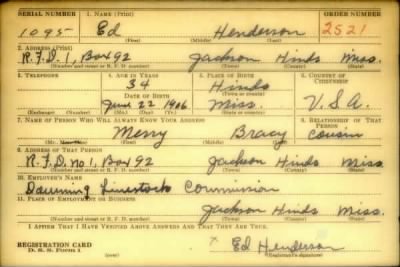 SERIAL NUMBER 1. NAME (Print) ORDER NUMBER
1095 Ed Henderson 2521
(First) (Middle) (Last)
2. ADDRESS (Print)
R.F.D. 1, Box 92 Jackson Hinds Miss.
(Number and street or R. F. D. number) (Town) (County) (State)
3. TELEPHONE 4. AGE IN YEARS 5. PLACE OF BIRTH 6. COUNTRY OF CITIZENSHIP
34 Hinds
DATE OF BIRTH (Town or county)
June 22 1906 Miss. U.S.A.
(Exchange) (Number) (Mo.) (Day) (Yr.) (State or country)
7. NAME OF PERSON WHO WILL ALWAYS KNOW YOUR ADDRESS 8. RELATIONSHIP OF THAT PERSON
Bracy Cousin
(Mr., Mrs., Miss) (First) (Middle) (Last)
9. ADDRESS OF THAT PERSON
R.F.D. No 1, Box 92 Jackson Hinds Miss.
(Number and street or R. F. D. number) (Town) (County) (State)
10. EMPLOYER'S NAME
Livestock Commission
11. PLACE OF EMPLOYMENT OR BUSINESS
Jackson Hinds Miss.
(Number and street or R. F. D. number) (Town) (County) (State)
I AFFIRM THAT I HAVE VERIFIED ABOVE ANSWERS AND THAT THEY ARE TRUE.
REGISTRATION CARD Ed Henderson
D. S. S. Form 1 (Registrant's signature)